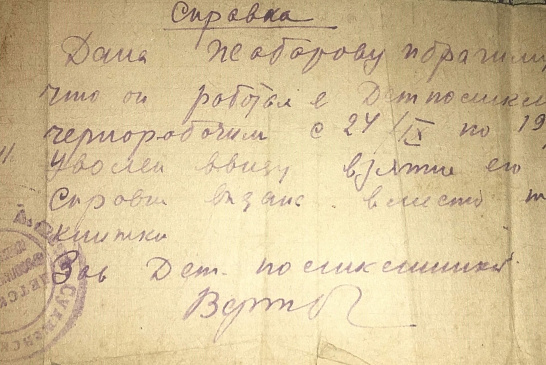 Справка
Дана Жабарову Ибрагиму
что он работал в Детполикли
чернорабочим с 24/IX по 19
Уволен ввиду взятия его
Справка выдана вместо т
книжки
Зав Дет. поликлиники